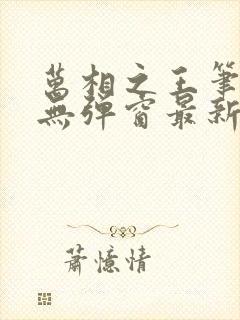 萬相之王筆
無彈窗最新
蕭憶情